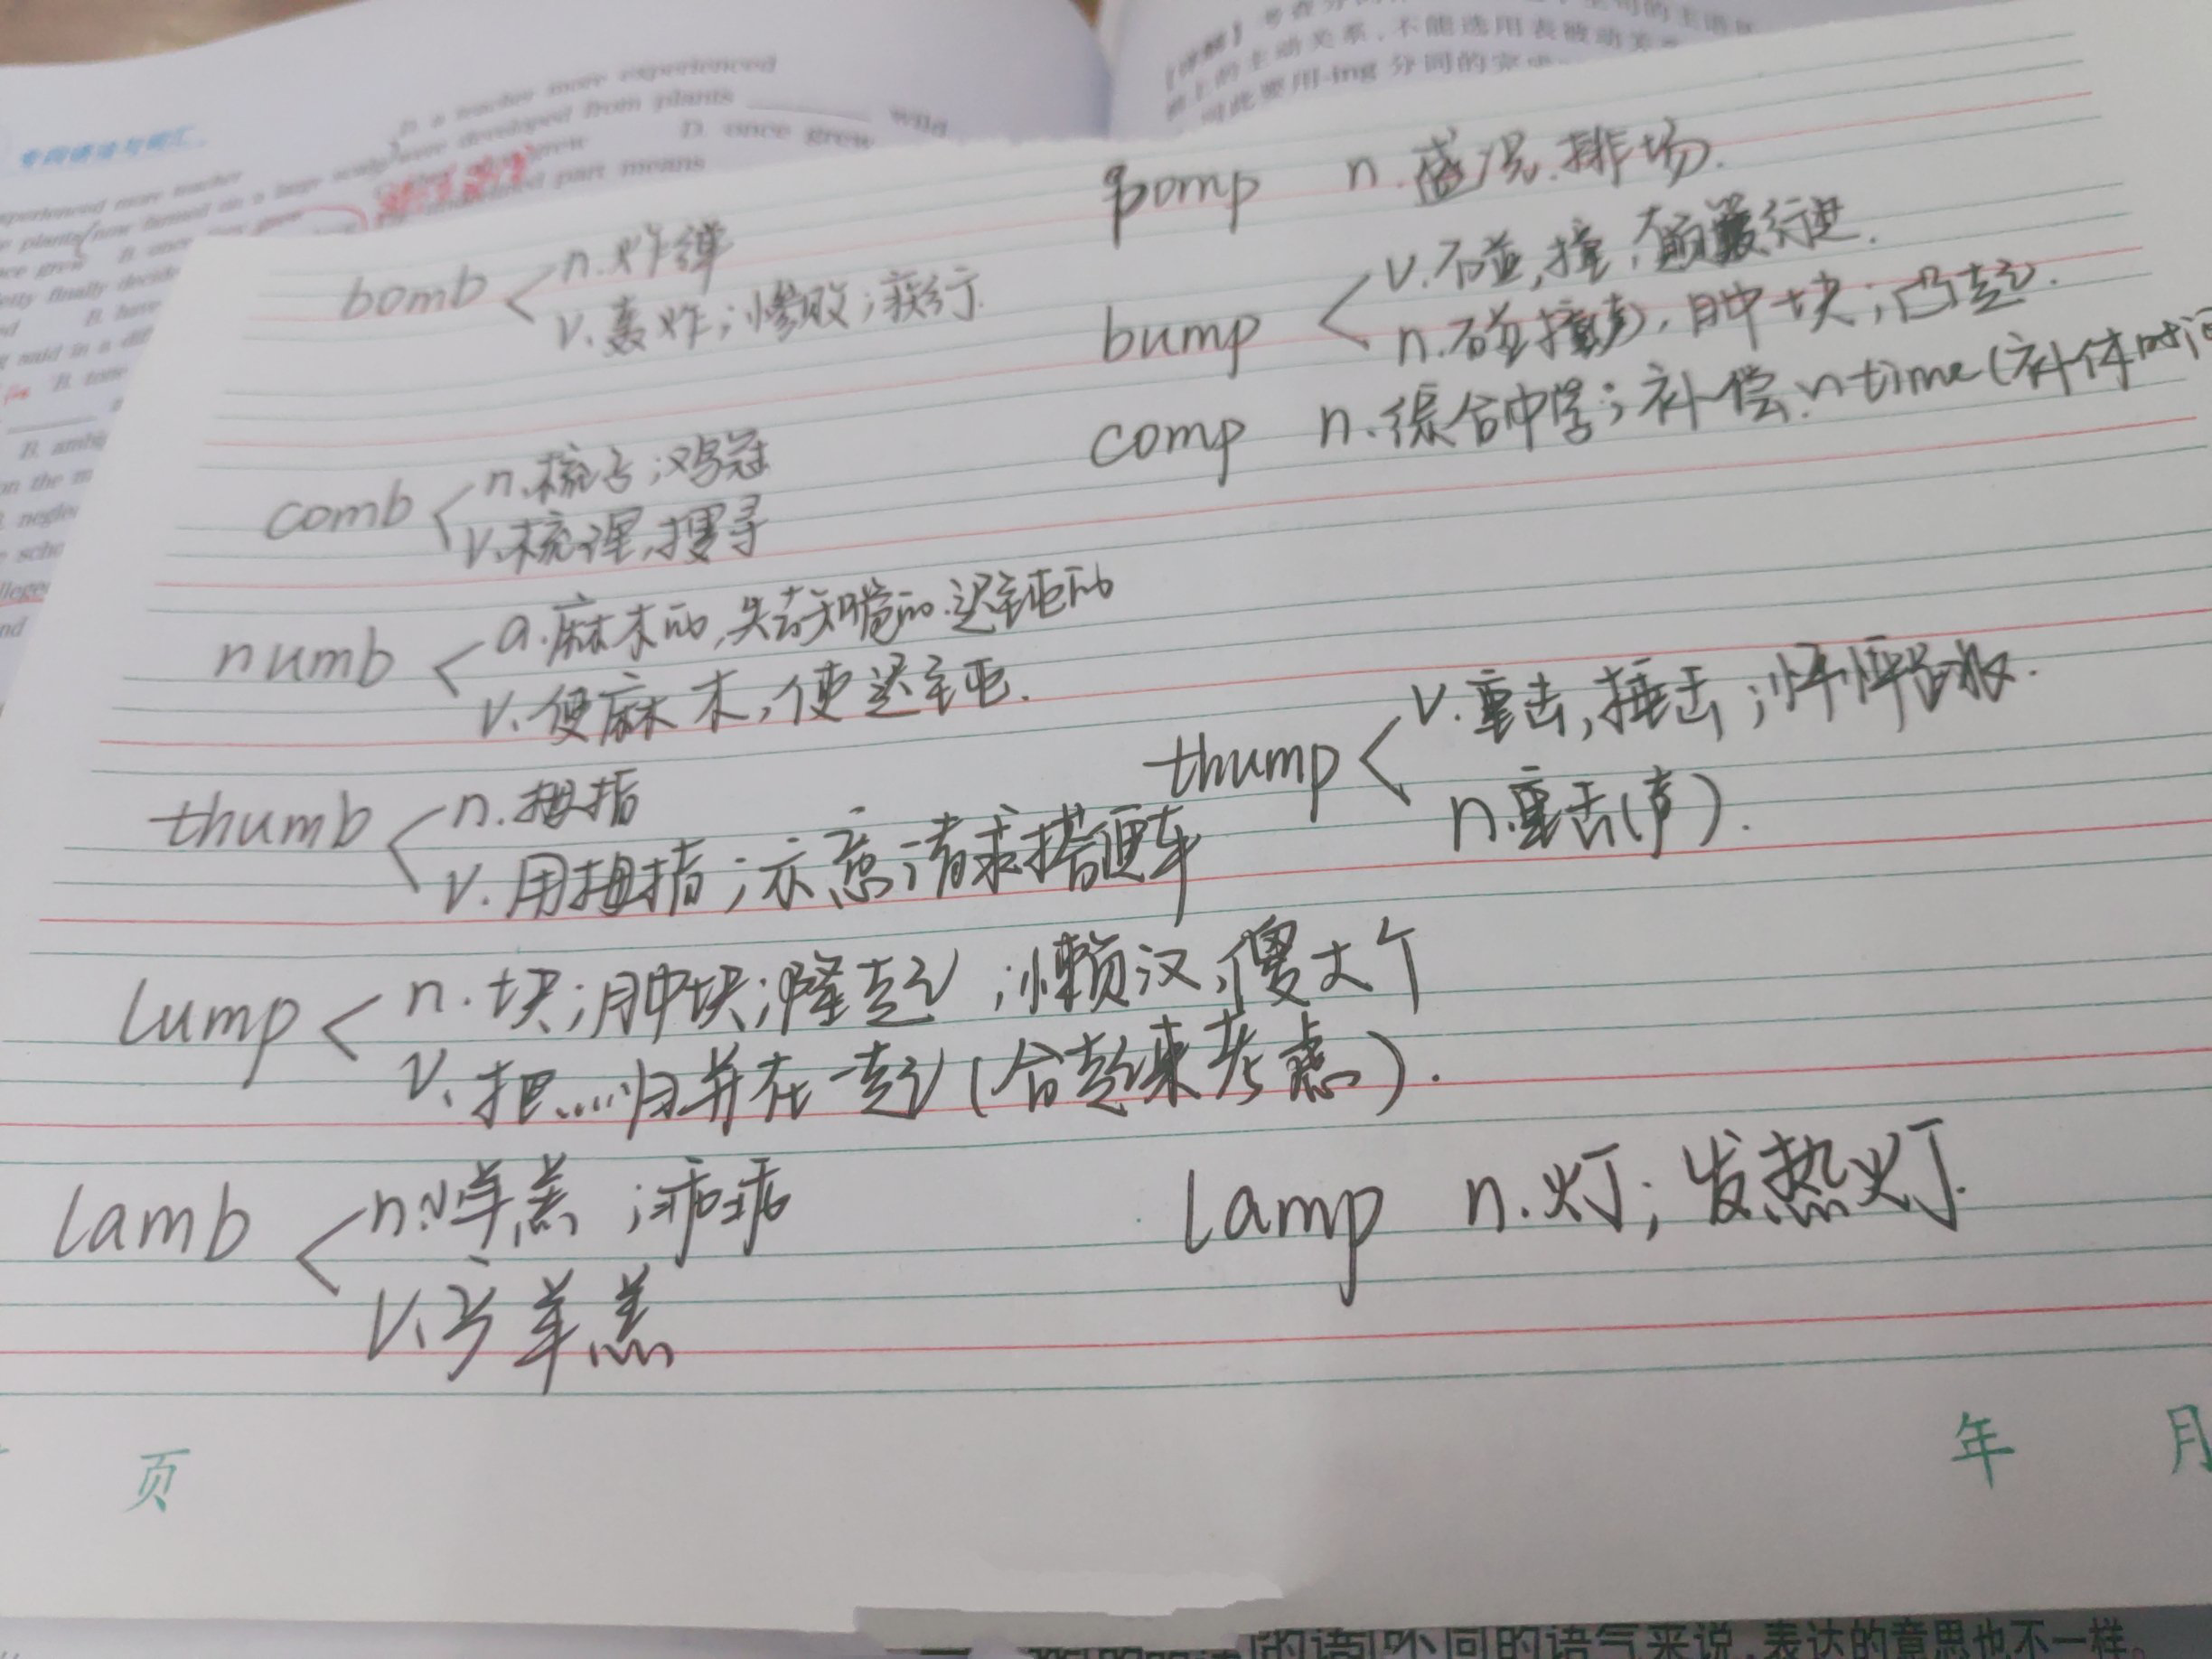 专四语法与词汇
D. a teacher more experienced
were developed from plants ______ wild
D. once grew
part means
experienced more teacher
上的主动关系，不能选用表被动关
因此要用-ing 分词的完
pomp n. 盛况.排场.
bomb < n.炸弹
v.轰炸;惨败;疾行.
bump < v.碰,撞;颠簸行进.
n.碰撞声,肿块;凸起.
comp n.综合中学;补偿 n time(补休时间
comb < n.梳子;鸡冠
v.梳理,搜寻
numb < a.麻木的,失去知觉的.迟钝的
v.使麻木,使迟钝.
thumb < n.拇指
v.用拇指;示意请求搭便车
thump < v.重击,捶击;怦怦
n.重击(声).
lump < n.块;肿块;隆起;懒汉,傻大个
v.把……归并在一起(合起来考虑).
lamb < n.小羊羔;乖乖
v.产羊羔
lamp n.灯;发热灯.
页 年 月
的语 不同的语气来说,表达的意思也不一样。